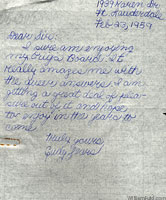 1939 Karen Dr
Ft. Lauderdale
Feb 23, 1959
Dear Sirs:
I sure am enjoying
my Ouija Board. It
really amazes me with
the answers. I am
getting a great deal of plea-
sure out of it and hope
to enjoy in the years to
come.
Truly yours